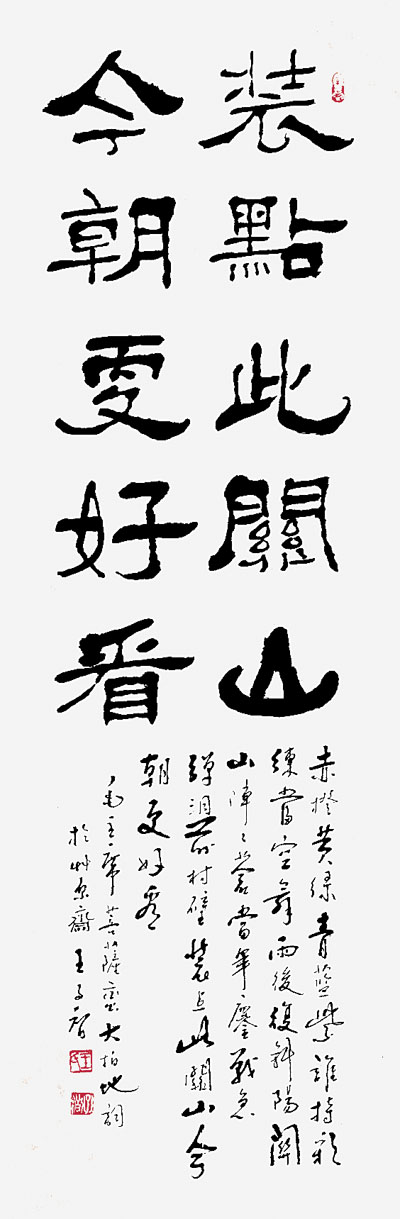 装點此關山
今朝更好看
赤橙黄綠青藍紫誰持彩
練當空舞雨後復斜陽關
山陣〻蒼當年鏖戰急
彈洞前村壁装点此關山今
朝更好看
毛主席菩薩蠻大柏地詞
於艸 齋王子